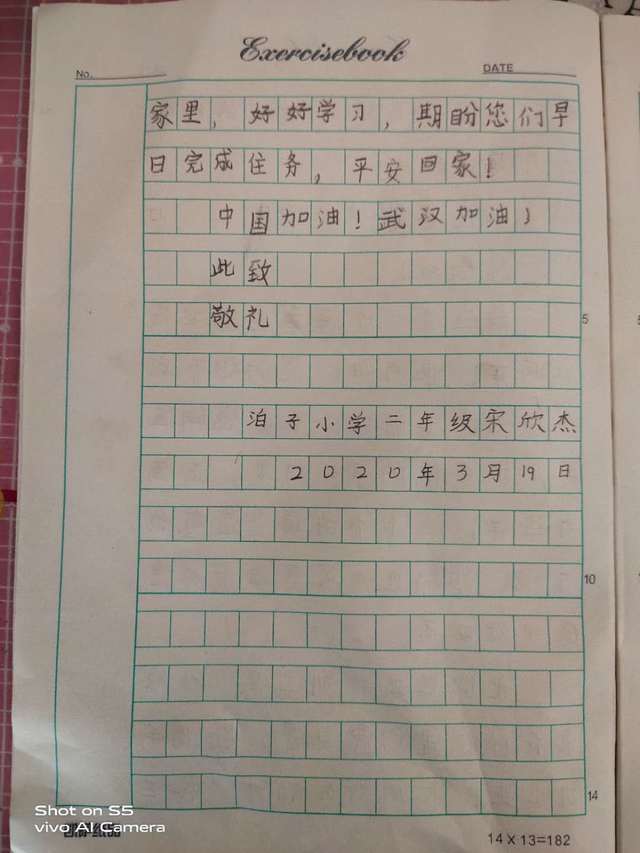 Exercisebook
No.
DATE
家里，好好学习，期盼您们早
日完成任务，平安回家！
中国加油！武汉加油！
此致
敬礼
5
泊子小学二年级宋欣杰
2020年3月19日
10
14
Shot on S5
vivo AI Camera
14×13=182